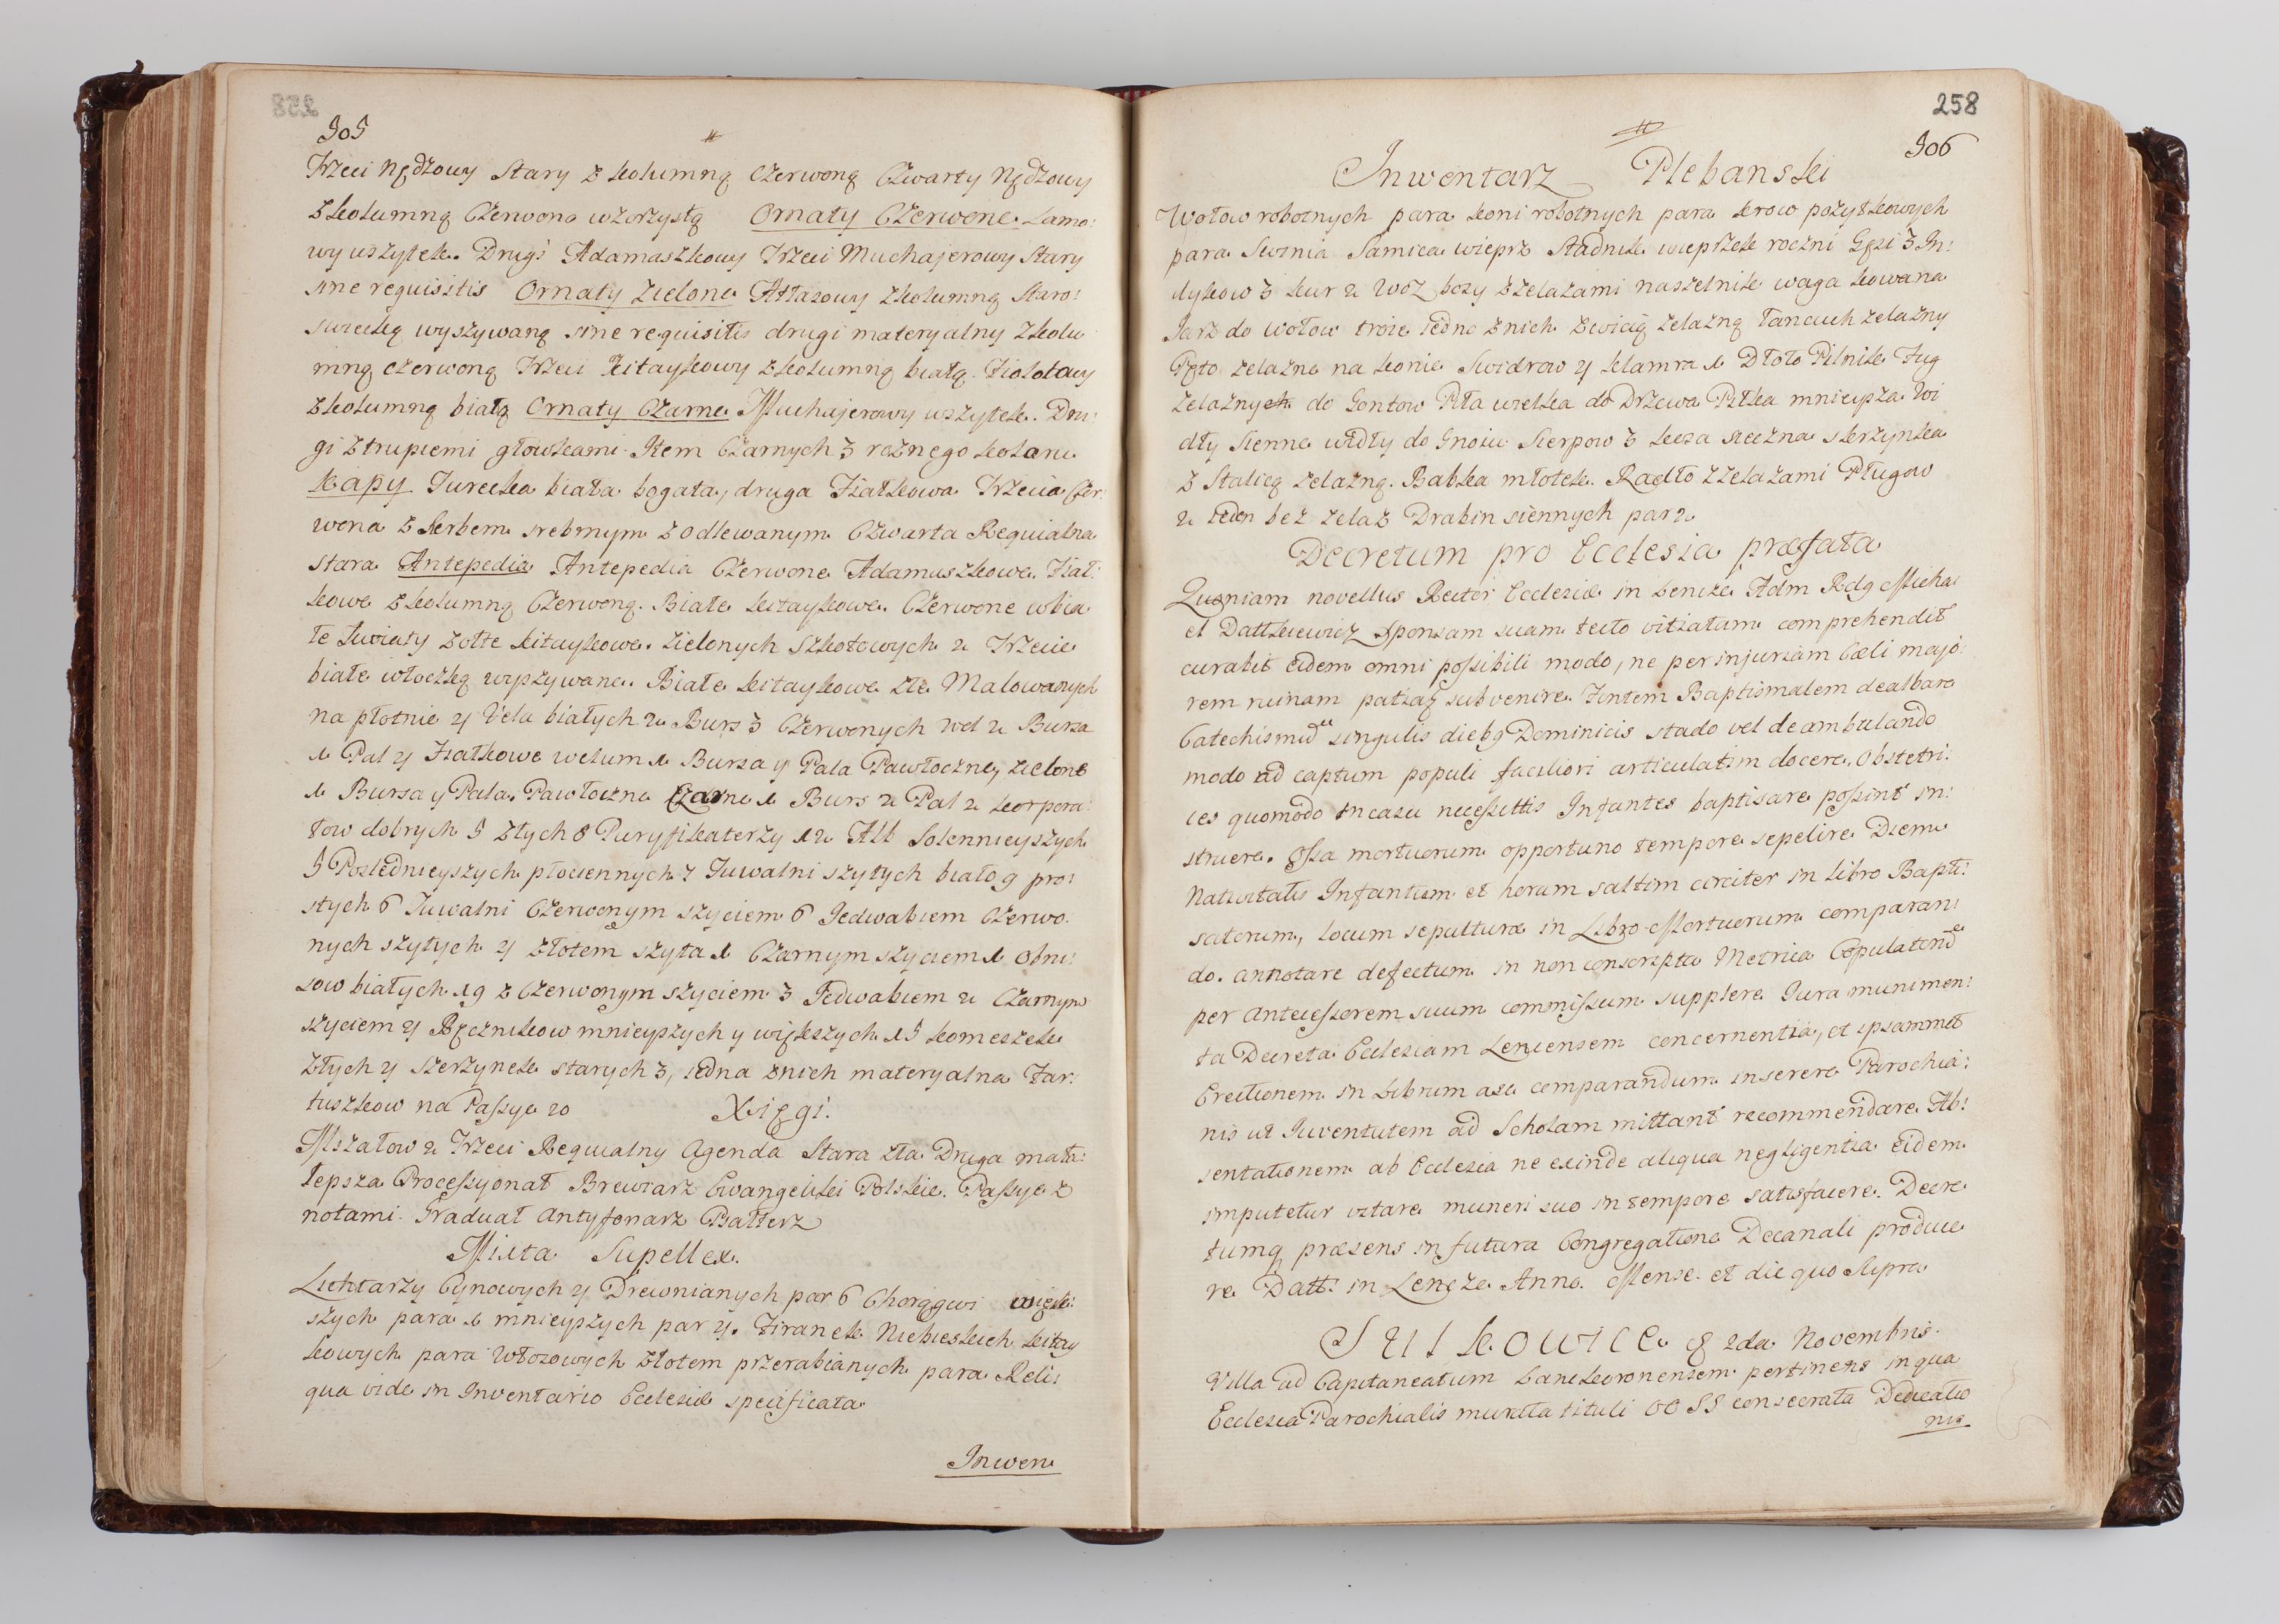 905
Trzeci Nędzowy Stary z kolumną Czerwoną Czwarty Nędzowy
z kolumną Czerwono wzorzystą Ornaty Czerwone. Lamo:
wy uszytek. Drugi Adamaszkowy Trzeci Muchajerowy Stary
sine requisitis Ornaty Zielone Atłasowy z kolumną Staro:
swiecką wyszywaną sine requisitis drugi materyalny z kolu
mną czerwoną Trzeci Kitaykowy z kolumną białą. Fiolotowy
z kolumną białą Ornaty Czarne Muchajerowy uszytek. Dru:
gi z trupiemi głowkami. Item Czarnych 3 rożnego koloru
Kapy Turecka biała bogata, druga Fiałkowa Trzecia Czer:
wona z Herbem srebrnym z odlewanym Czwarta Requialna
stara Antepedia Antepedia Czerwone Adamuszkowe. Fiał:
kowe z kolumną Czerwoną. Białe kitaykowe. Czerwone w bia
łe kwiaty żołte kitaykowe. Zielonych Szkotowych 2 Trzecie
białe włoczką wyszywane. Białe kitaykowe złe Malowanych
na płotnie 4 Vela białych 2 Burs 3 Czerwonych Wel 2 Bursa
1 Pal 4 Fiałkowe welum 1 Bursa y Pala Pawłoczne, zielone
1 Bursa y Pala. Pawłoczna Czarne 1 Burs 2 Pal 2 korpora:
łow dobrych 5 złych 8 Puryfikaterzy 12 Alb Solennieyszych
5 Poslednieyszych płociennych 7 Tuwalni szytych biało 9 pro:
stych 6 Tuwalni Czerwonym szyciem 6 Jedwabiem Czerwo
nych szytych 4 złotem szyta 1 Czarnym szyciem 1 Obru:
sow białych 19 z Czerwonym szyciem 3 Jedwabiem 2 Czarnym
szyciem 4 Ręcznikow mnieyszych y większych 15 komeszek
złych 4 szerzynek starych 3, iedna z nich materyalna Far:
tuszkow na Passye 20 Xięgi.
Mszałow 2 Trzeci Requialny Agenda Stara zła Druga mała:
lepsza Processyonał Brewiarz Ewangeliki Polskie. Passye z
notami. Graduał Antyfonarz Psałterz
Mixta Supellex.
Lichtarzy Cynowych 4 Drewnianych par 6 Chorągwi więk:
szych para 1 mnieyszych par 4. Firanek Niebieskich kitay
kowych para Włosowych złotem przerabianych para Reli:
qua vide in Inventario Ecclesiæ specificata
Inwen
258
906
Inwentarz Plebanski
Wołow robotnych para koni robotnych para krow pożytkowych
para Swinia Samica wieprz Stadnik wieprzek roczni Gęsi 3 In:
dykow 3 kur 2 Woz bosy z żelazami naszelnik waga kowana
Jarz do wołow troie iedno z nich z wicią żelazną łancuch żelazny
Pęto żelazne na konie Swidrow 4 klamra 1 Dłoto Pilnik Jug
żelaznych do Gontow Piła wielka do Drzewa Piłka mnieysza Wi
dły Sienne widły do Gnoiu Sierpow 3 kosa sieczna skrzynka
z Stalicą żelazną. Babka młotek. Radło z żelazami Pługow
2 ieden bez żelaz Drabin siennych par 2
Decretum pro Ecclesia præfata
Quoniam novellus Rector Ecclesiæ in Lencze Adm Rdg Micha
el Dattkiewicz Sponsam suam tecto vitiatam comprehendit
curabit eidem omni possibili modo, ne per injuriam Cæli majo:
rem ruinam patiatur subvenire. Fontem Baptismalem dealbare
Catechismum singulis diebus Dominicis stado vel deambulando
modo ad captum populi faciliori articulatim docere. Obstetri:
ces quomodo in casu necessittis Infantes baptisare possint in:
struere. Ossa mortuorum opportuno tempore sepelire Diem
Nativitatis Infantium et horam saltim circiter in libro Bapti:
satorum, locum sepulturæ in Libro Mortuorum comparan:
do. annotare defectum in non conscripta Metrica Copulatorum
per Antecessorem suum commissum supplere Jura munimen:
ta Decreta Ecclesiam Lencensem concernentia, et ipsammet
Erectionem in Librum ase comparandum inserere Parochia:
nis ut Juventutem ad Scholam mittant recommendare. Ab:
sentationem ab Ecclesia ne exinde aliqua negligentia eidem
imputetur vitare muneri suo in tempore satisfacere. Decre
tumq præsens in futura Congregatione Decanali produce
re Datt: in Lencze Anno. Mense. et die quo Supra
Sulkowice 2da Novembris.
Villa ad Capitaneatum Lanckoronensem pertinens in qua
Ecclesia Parochialis murata tituli OO SS consecrata Dedicatio
nis